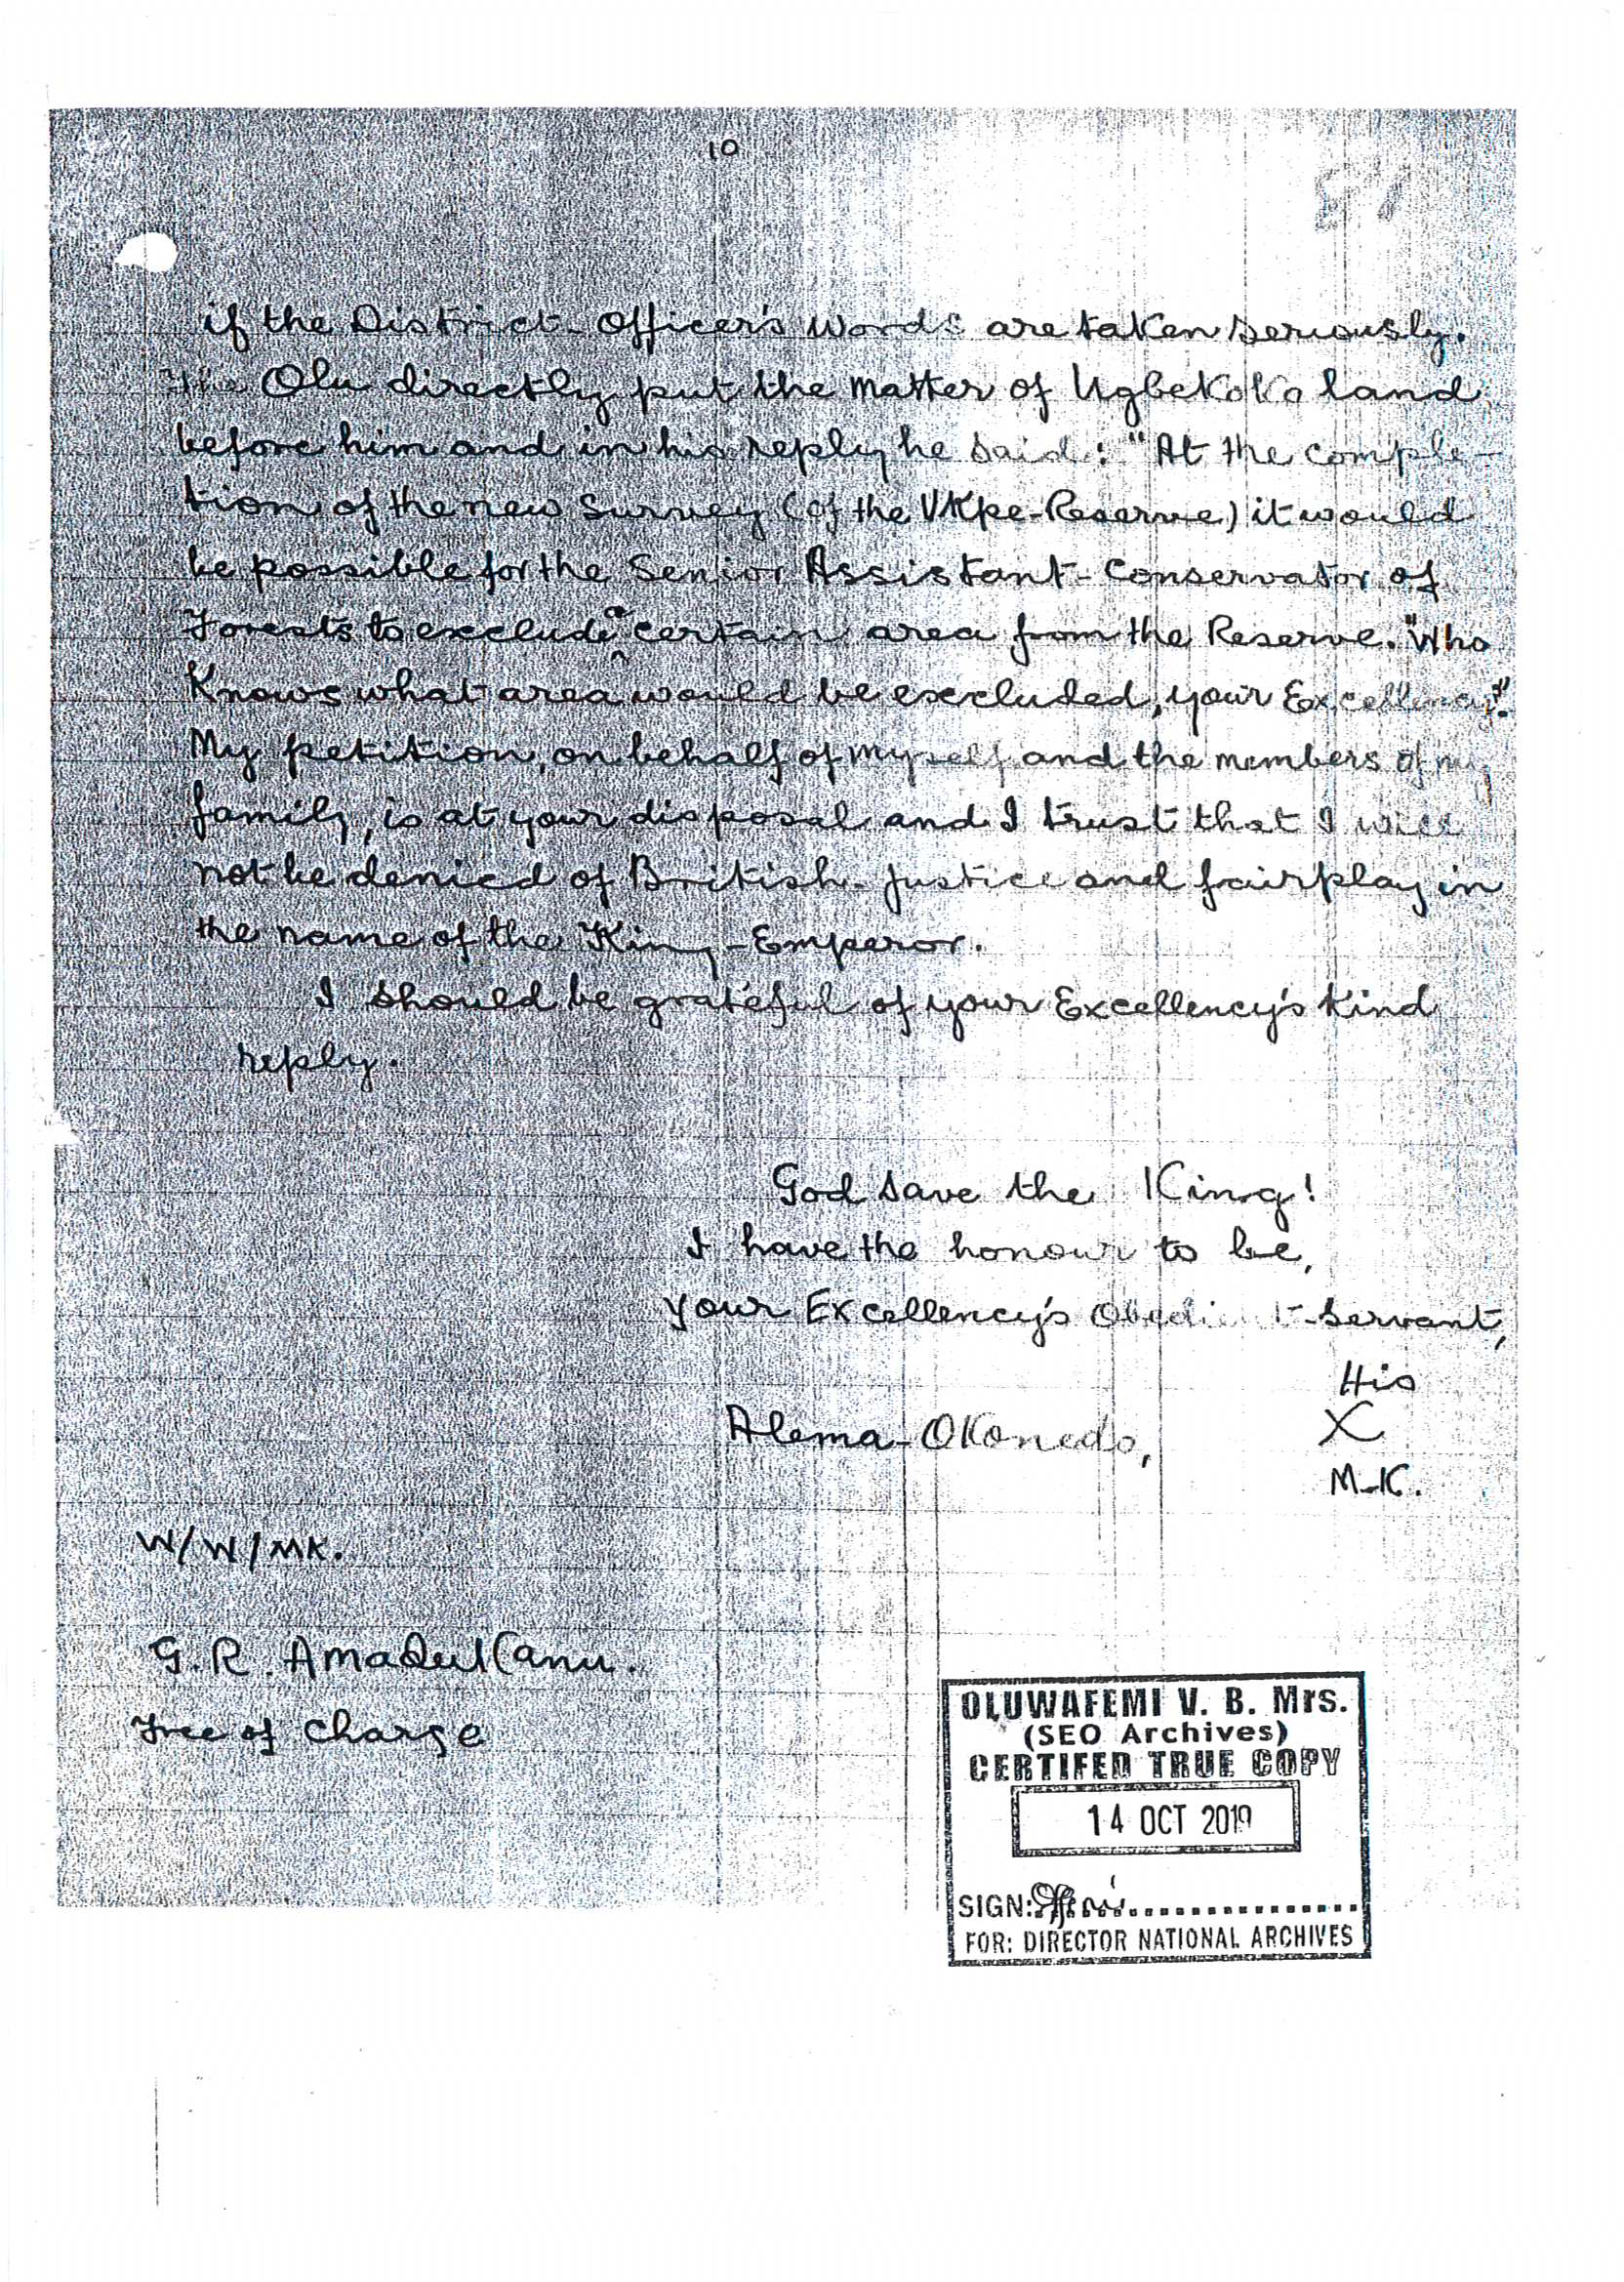 10
if the District-Officer's words are taken seriously.
The Olu directly put the matter of Ugbekoko land
before him and in his reply he said: "At the comple-
tion of the new Survey (of the Ukpe-Reserve) it would
be possible for the Senior Assistant-Conservator of
Forests to exclude a certain area from the Reserve." Who
knows what area would be excluded, your Excellency?"
My petition, on behalf of myself and the members of my
family, is at your disposal and I trust that I will
not be denied of British-Justice and fairplay in
the name of the King-Emperor.
I should be grateful of your Excellency's kind
reply.
God save the King!
I have the honour to be,
your Excellency's Obedient-Servant,
His
Alema-Okonedo, X
M-K.
W/W/MK.
G. R. Amadu Kanu.
Free of Charge
OLUWAFEMI V. B. Mrs.
(SEO Archives)
CERTIFED TRUE COPY
14 OCT 2019
SIGN:
FOR: DIRECTOR NATIONAL ARCHIVES